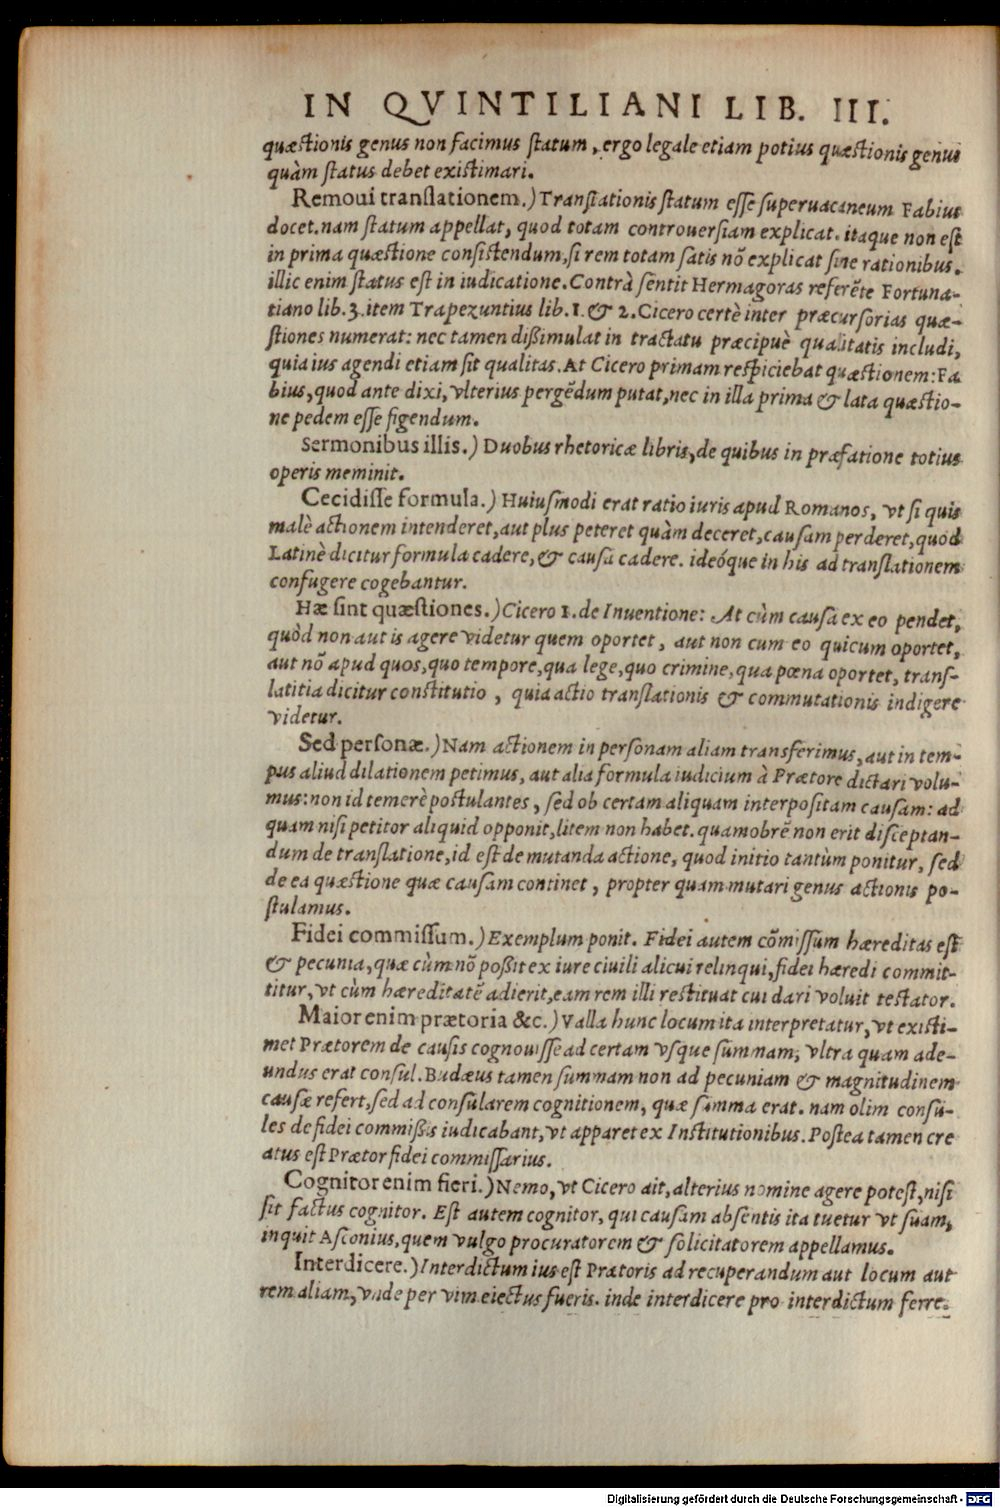 IN QVINTILIANI LIB. III.
quæstionis genus non facimus ſtatum, ergo legale etiam potius quæstionis genus
quàm ſtatus debet existimari.
Remoui translationem.) Translationis ſtatum eſſe ſuperuacaneum Fabius
docet. nam ſtatum appellat, quod totam controuerſiam explicat. itaque non eſt
in prima quæstione conſistendum, ſi rem totam ſatis nõ explicat ſine rationibus.
illic enim ſtatus eſt in iudicatione. Contrà ſentit Hermagoras referẽte Fortuna-
tiano lib. 3. item Trapezuntius lib. 1. & 2. Cicero certè inter præcurſorias quæ-
ſtiones numerat: nec tamen dißimulat in tractatu præcipuè qualitatis includi,
quia ius agendi etiam ſit qualitas. At Cicero primam reſpiciebat quæstionem: Fa
bius, quod ante dixi, vlterius pergẽdum putat, nec in illa prima & lata quæstio-
ne pedem eſſe figendum.
Sermonibus illis.) Duobus rhetoricæ libris, de quibus in præfatione totius
operis meminit.
Cecidiſſe formula.) Huiuſmodi erat ratio iuris apud Romanos, vt ſi quis
malè actionem intenderet, aut plus peteret quàm deceret, cauſam perderet, quod
Latinè dicitur formula cadere, & cauſa cadere. ideóque in his ad translationem
confugere cogebantur.
Hæ ſint quæstiones.) Cicero 1. de Inuentione: At cùm cauſa ex eo pendet,
quòd non aut is agere videtur quem oportet, aut non cum eo quicum oportet,
aut nõ apud quos, quo tempore, qua lege, quo crimine, qua pœna oportet, tranſ-
latitia dicitur constitutio, quia actio translationis & commutationis indigere
videtur.
Sed perſonæ.) Nam actionem in perſonam aliam transferimus, aut in tem-
pus aliud dilationem petimus, aut alia formula iudicium à Prætore dictari volu-
mus: non id temerè poſtulantes, ſed ob certam aliquam interpoſitam cauſam: ad
quam niſi petitor aliquid opponit, litem non habet. quamobrẽ non erit diſceptan-
dum de translatione, id eſt de mutanda actione, quod initio tantùm ponitur, ſed
de ea quæstione quæ cauſam continet, propter quam mutari genus actionis po-
ſtulamus.
Fidei commiſſum.) Exemplum ponit. Fidei autem cõmiſſum hæreditas eſt
& pecunia, quæ cùm nõ poßit ex iure ciuili alicui relinqui, fidei hæredi commit-
titur, vt cùm hæreditatẽ adierit, eam rem illi reſtituat cui dari voluit teſtator.
Maior enim prætoria &c.) Valla hunc locum ita interpretatur, vt exiſti-
met Prætorem de cauſis cognouiſſe ad certam vſque ſummam, vltra quam ade-
undus erat conſul. Budæus tamen ſummam non ad pecuniam & magnitudinem
cauſæ refert, ſed ad conſularem cognitionem, quæ ſumma erat. nam olim conſu-
les de fidei commißis iudicabant, vt apparet ex Inſtitutionibus. Poſtea tamen cre
atus eſt Prætor fidei commiſſarius.
Cognitor enim fieri.) Nemo, vt Cicero ait, alterius nomine agere poteſt, niſi
ſit factus cognitor. Eſt autem cognitor, qui cauſam abſentis ita tuetur vt ſuam,
inquit Aſconius, quem vulgo procuratorem & ſolicitatorem appellamus.
Interdicere.) Interdictum ius eſt Prætoris ad recuperandum aut locum aut
rem aliam, vnde per vim eiectus fueris. inde interdicere pro interdictum ferre.
Digitalisierung gefördert durch die Deutsche Forschungsgemeinschaft - DFG